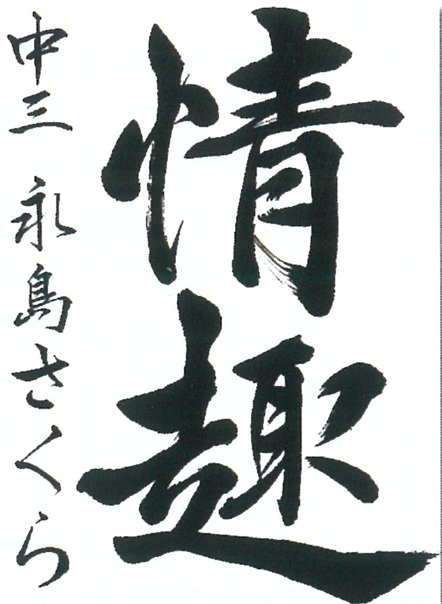 情趣
中三 永島さくら